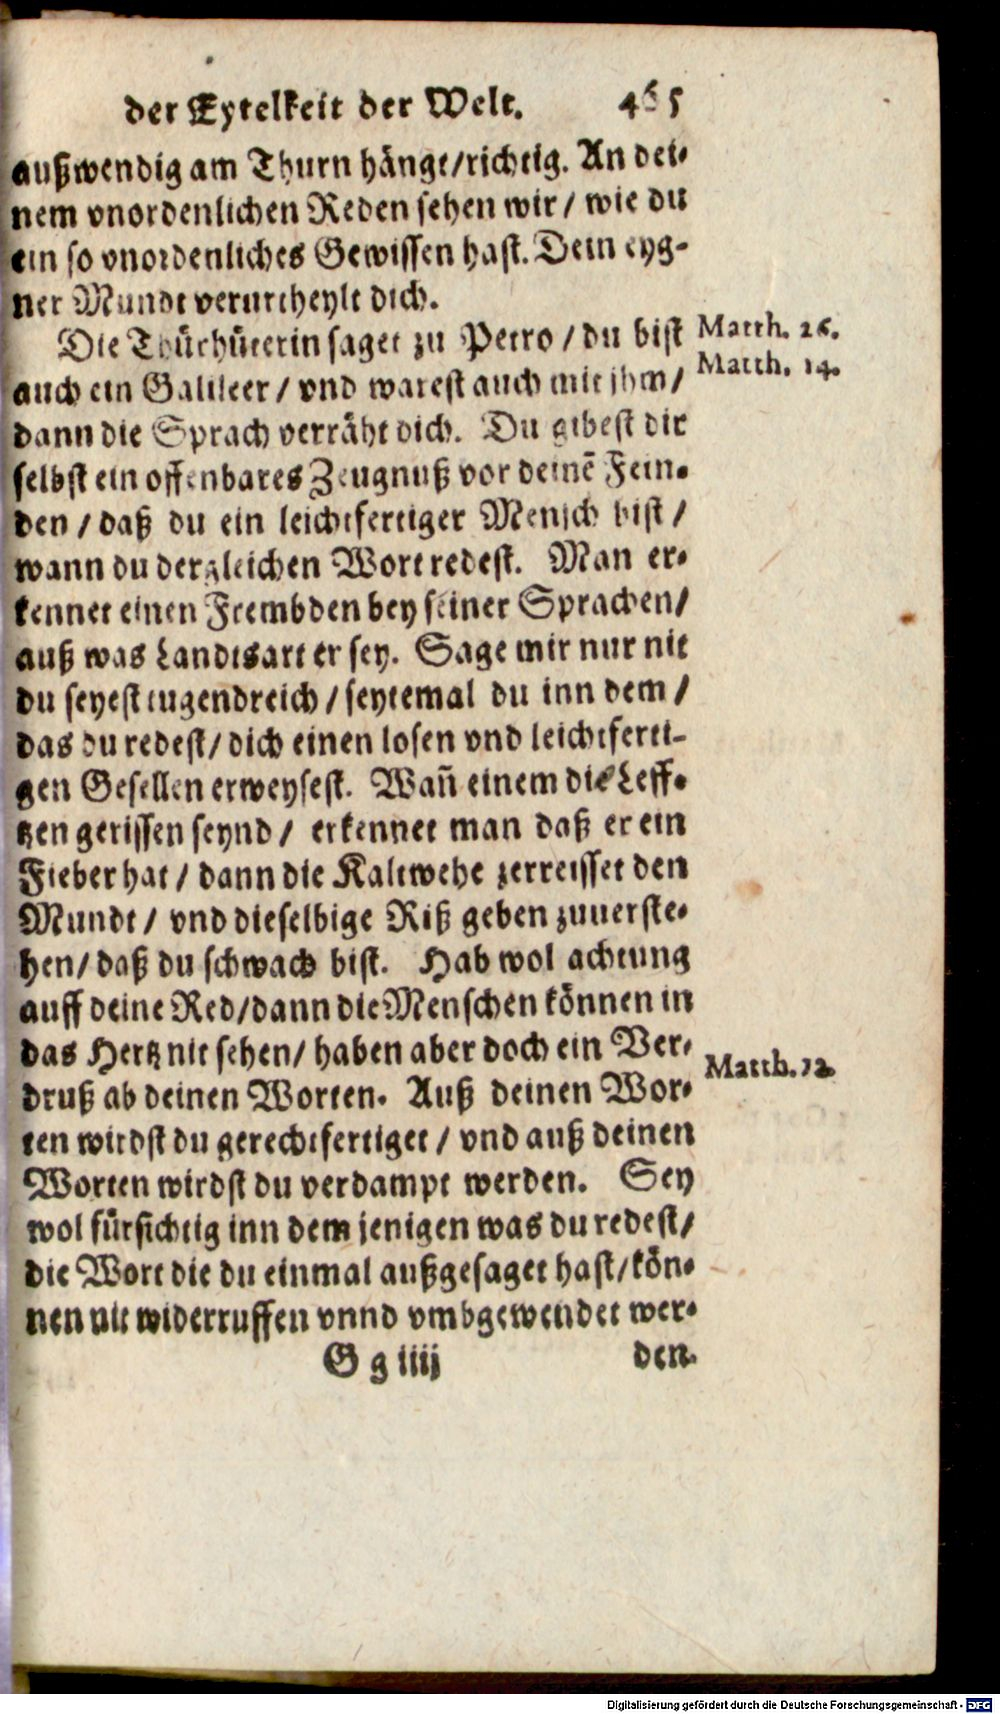 der Eytelkeit der Welt. 465
außwendig am Thurn hängt/richtig. An dei-
nem vnordenlichen Reden sehen wir / wie du
ein so vnordenliches Gewissen hast. Dein eyg-
ner Mundt verurtheylt dich.
Die Thürhüterin saget zu Petro / du bist
Matth. 26.
auch ein Galileer / vnd warest auch mit jhm /
Matth. 14.
dann die Sprach verräht dich. Du gibest dir
selbst ein offenbares Zeugnuß vor deinē Fein-
den / daß du ein leichtfertiger Mensch bist /
wann du dergleichen Wort redest. Man er-
kennet einen Frembden bey seiner Sprachen/
auß was Landtsart er sey. Sage mir nur nit
du seyest tugendreich / seytemal du inn dem /
das du redest/ dich einen losen vnd leichtferti-
gen Gesellen erweysest. Wañ einem die Leff-
tzen gerissen seynd / erkennet man daß er ein
Fieber hat / dann die Kaltwehe zerreisset den
Mundt / vnd dieselbige Riß geben zuuerste-
hen/ daß du schwach bist. Hab wol achtung
auff deine Red/dann die Menschen können in
das Hertz nit sehen/ haben aber doch ein Ver-
Matth. 12.
druß ab deinen Worten. Auß deinen Wor-
ten wirdst du gerechtfertiget / vnd auß deinen
Worten wirdst du verdampt werden. Sey
wol fürsichtig inn dem jenigen was du redest/
die Wort die du einmal außgesaget hast/kön-
nen nit widerruffen vnnd vmbgewendet wer-
G g iiij den.
Digitalisierung gefördert durch die Deutsche Forschungsgemeinschaft - DFG